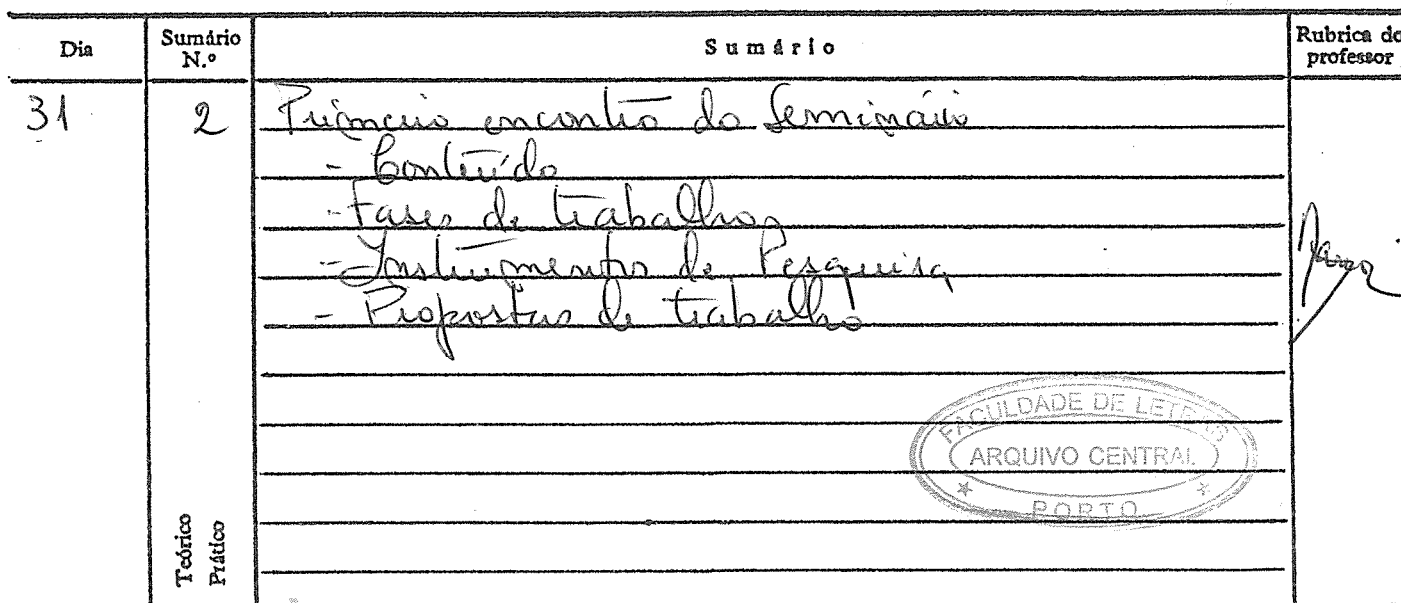 Dia Sumário N.º Sumário Rubrica do professor
31 2 Primeiro encontro do Seminário
- Conteúdo
- Fases de trabalho
- Instrumentos de Pesquisa
- Propostas de trabalho
FACULDADE DE LETRAS
ARQUIVO CENTRAL
PORTO
Teórico
Prático